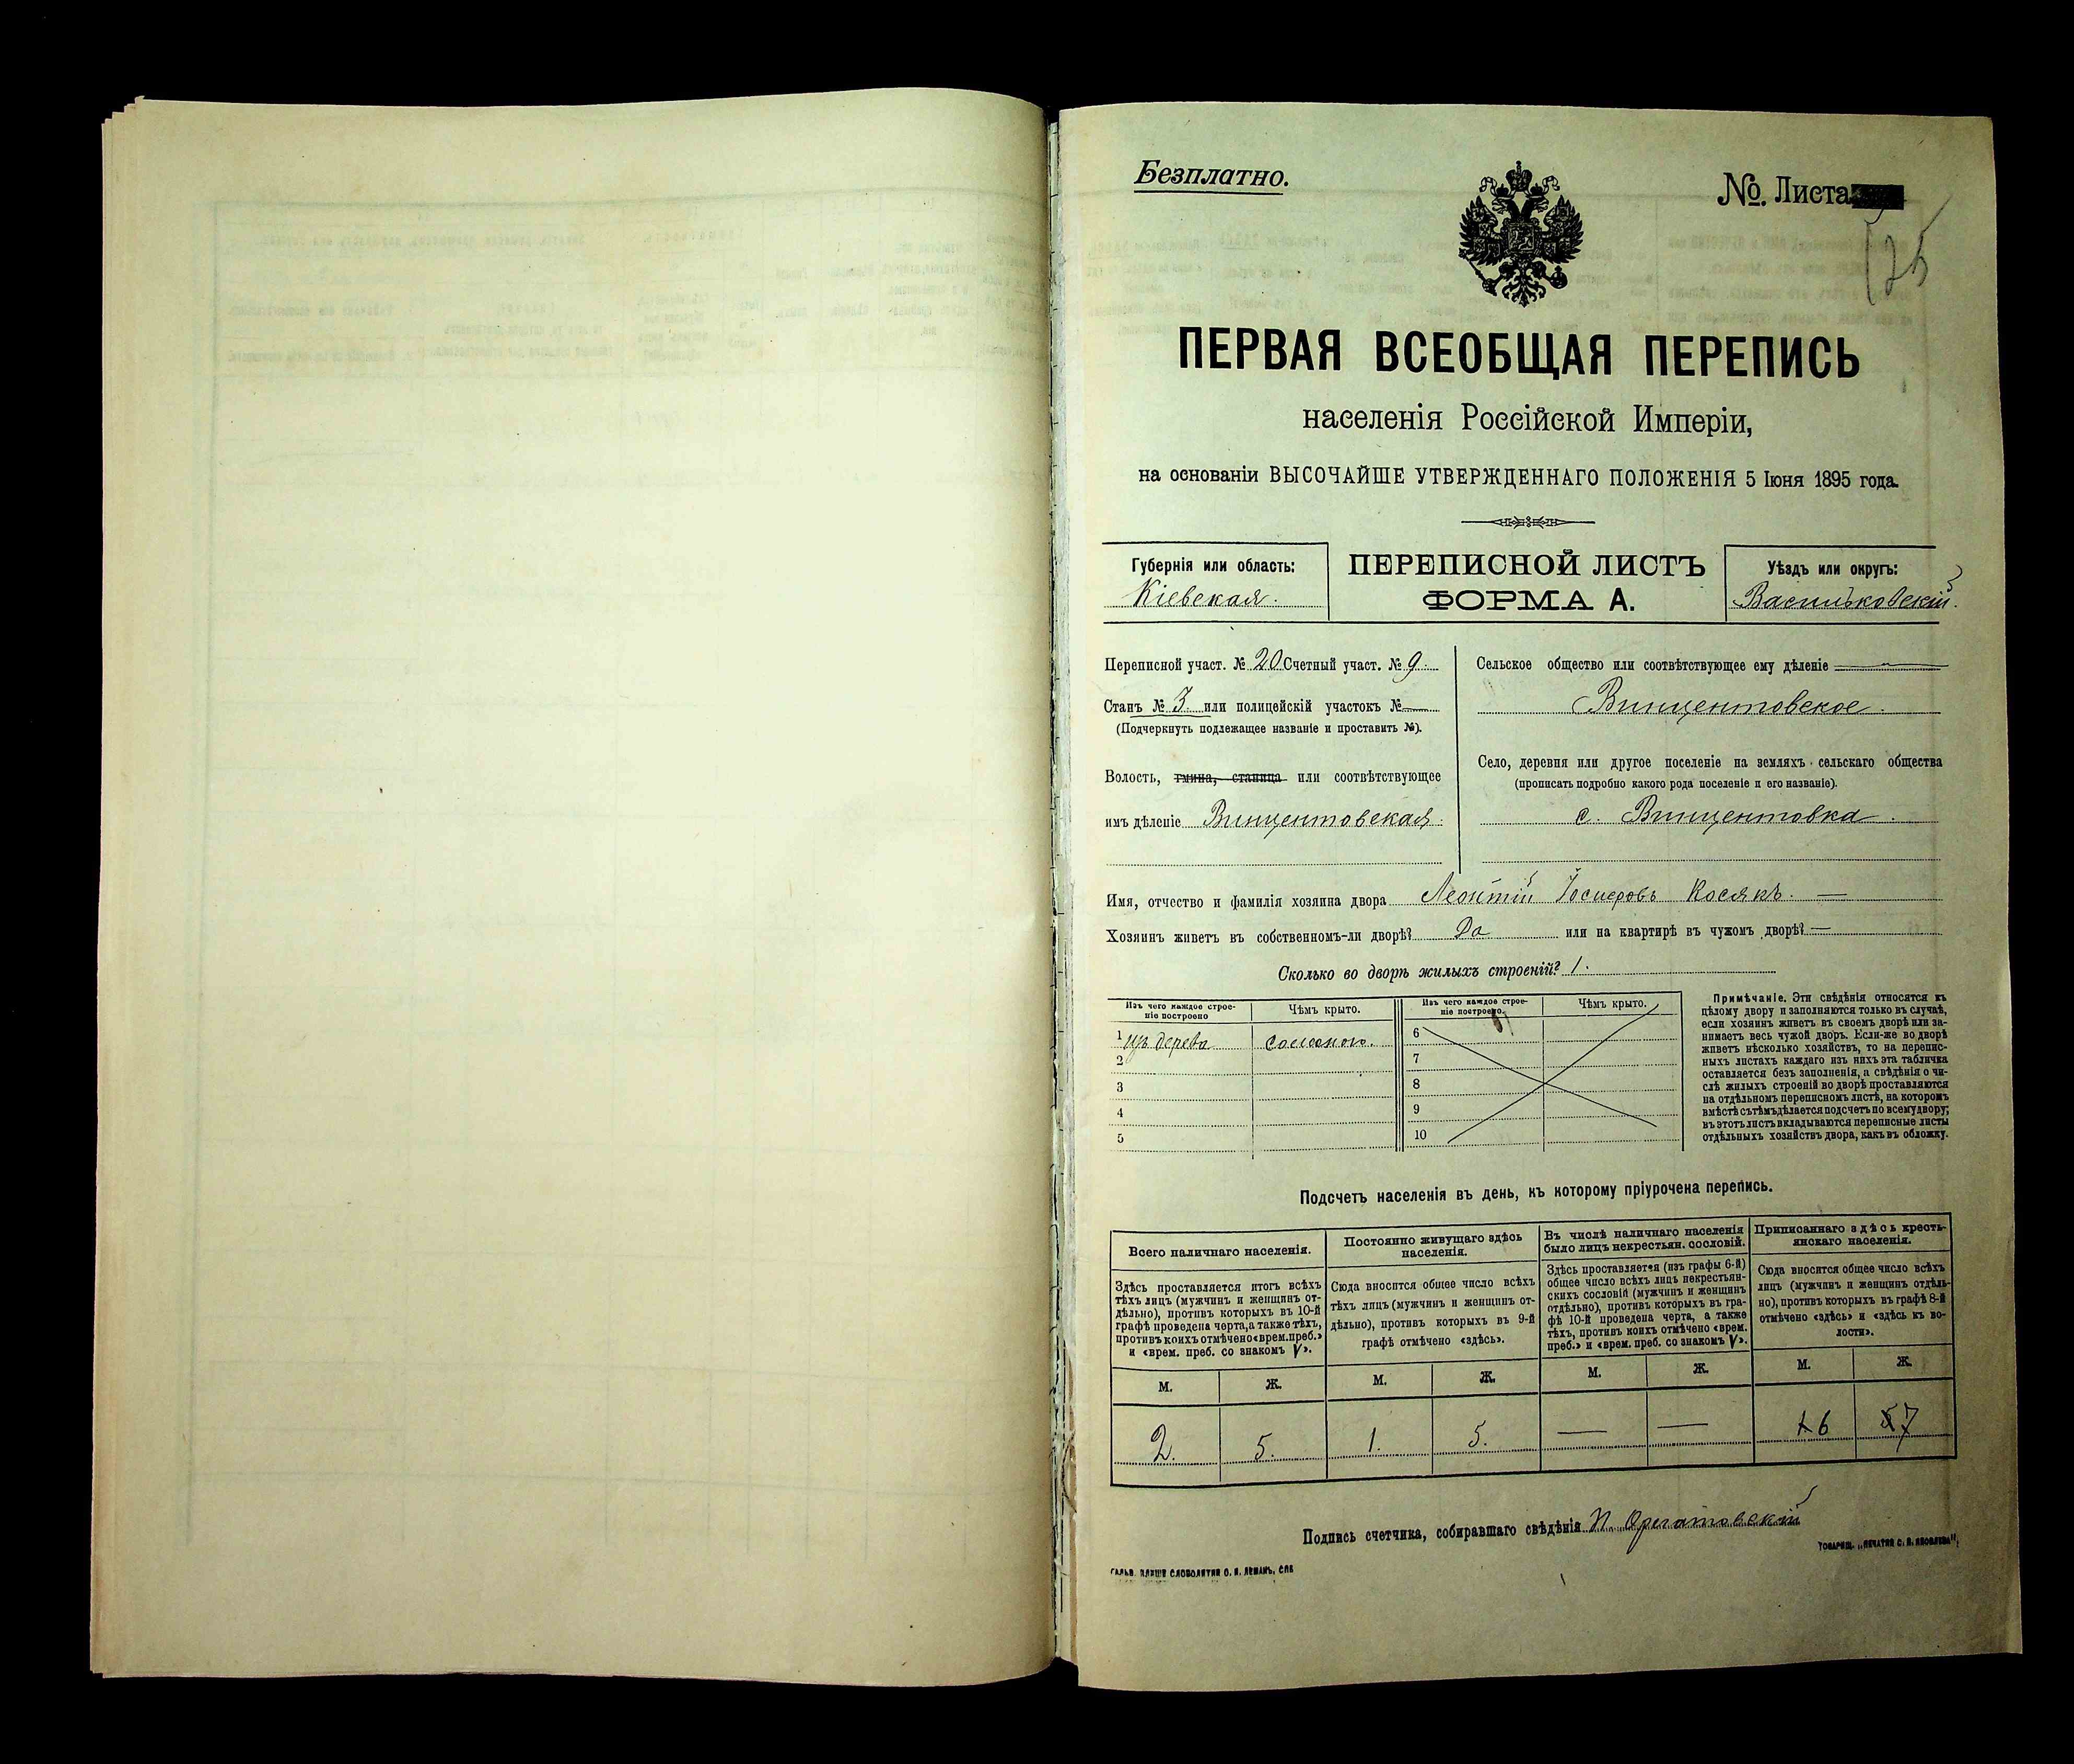 Безплатно.
№. Листа
25
ПЕРВАЯ ВСЕОБЩАЯ ПЕРЕПИСЬ
населенія Россійской Имперіи,
на основаніи ВЫСОЧАЙШЕ УТВЕРЖДЕННАГО ПОЛОЖЕНІЯ 5 Іюня 1895 года.
Губернія или область:
Кіевская.
ПЕРЕПИСНОЙ ЛИСТЪ
ФОРМА А.
Уѣздъ или округъ:
Васильковскій.
Переписной участ. № 20 Счетный участ. № 9.
Станъ № 3. или полицейскій участокъ № —
(Подчеркнуть подлежащее названіе и проставить №).
Волость, гмина, станица или соотвѣтствующее
имъ дѣленіе Винцентовская.
Сельское общество или соотвѣтствующее ему дѣленіе —
Винцентовское.
Село, деревня или другое поселеніе на земляхъ сельскаго общества
(прописать подробно какого рода поселеніе и его названіе).
с. Винцентовка.
Имя, отчество и фамилія хозяина двора Леонтій Іосифовъ Косякъ. —
Хозяинъ живетъ въ собственномъ-ли дворѣ? Да или на квартирѣ въ чужомъ дворѣ? —
Сколько во дворѣ жилыхъ строеній? 1.
Изъ чего каждое строе-
ніе построено
Чѣмъ крыто.
1 изъ дерева соломою.
2
3
4
5
Изъ чего каждое строе-
ніе построено.
Чѣмъ крыто.
6
7
8
9
10
Примѣчаніе. Эти свѣдѣнія относятся къ
цѣлому двору и заполняются только въ случаѣ,
если хозяинъ живетъ въ своемъ дворѣ или за-
нимаетъ весь чужой дворъ. Если-же во дворѣ
живетъ нѣсколько хозяйствъ, то на перепис-
ныхъ листахъ каждаго изъ нихъ эта табличка
оставляется безъ заполненія, а свѣдѣнія о чи-
слѣ жилыхъ строеній во дворѣ проставляются
на отдѣльномъ переписномъ листѣ, на которомъ
вмѣстѣ съ тѣмъ дѣлается подсчетъ по всему двору;
въ этотъ листъ вкладываются переписные листы
отдѣльныхъ хозяйствъ двора, какъ въ обложку.
Подсчетъ населенія въ день, къ которому пріурочена перепись.
Всего наличнаго населенія.
Здѣсь проставляется итогъ всѣхъ
тѣхъ лицъ (мужчинъ и женщинъ от-
дѣльно), противъ которыхъ въ 10-й
графѣ проведена черта, а также тѣхъ,
противъ коихъ отмѣчено «врем. преб.»
и «врем. преб. со знакомъ V».
М. Ж.
2. 5.
Постоянно живущаго здѣсь
населенія.
Сюда вносится общее число всѣхъ
тѣхъ лицъ (мужчинъ и женщинъ от-
дѣльно), противъ которыхъ въ 9-й
графѣ отмѣчено «здѣсь».
М. Ж.
1. 5.
Въ числѣ наличнаго населенія
было лицъ некрестьян. сословій.
Здѣсь проставляется (изъ графы 6-й)
общее число всѣхъ лицъ некрестьян-
скихъ сословій (мужчинъ и женщинъ
отдѣльно), противъ которыхъ въ гра-
фѣ 10-й проведена черта, а также
тѣхъ, противъ коихъ отмѣчено «врем.
преб.» и «врем. преб. со знакомъ V».
М. Ж.
— —
Приписаннаго здѣсь кресть-
янскаго населенія.
Сюда вносится общее число всѣхъ
лицъ (мужчинъ и женщинъ отдѣль-
но), противъ которыхъ въ графѣ 8-й
отмѣчено «здѣсь» и «здѣсь къ во-
лости».
М. Ж.
1 6 5 7
Подпись счетчика, собиравшаго свѣдѣнія
ТОВАРИЩ. „ПЕЧАТНЯ С. П. ЯКОВЛЕВА“
ГАЛЬВ. КЛИШЕ СЛОВОЛИТНИ О. И. ЛЕМАНЪ, СПБ